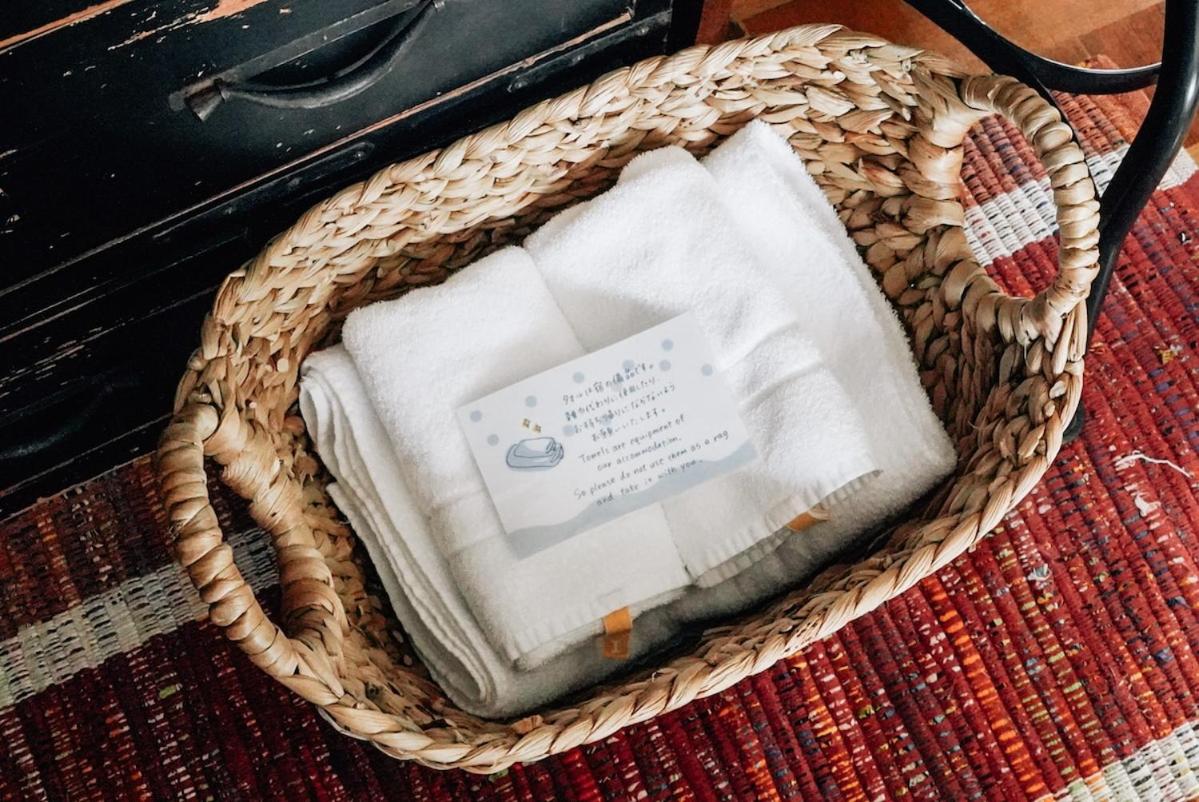 タオルは宿の備品です。
雑巾代わりに使用したり、
お持ち帰りにならないよう
お願いいたします。
Towels are equipment of
our accommodation.
So please do not use them as a rag
and take it with you.